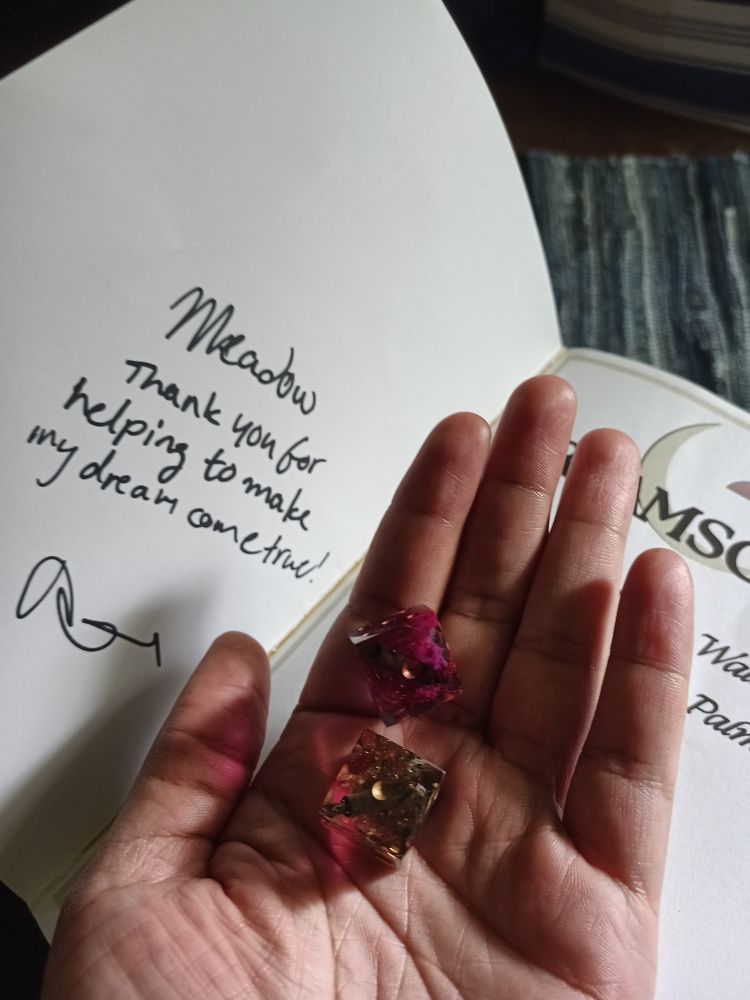 Meadow
Thank you for
helping to make
my dream come true!
AMSC
Palm